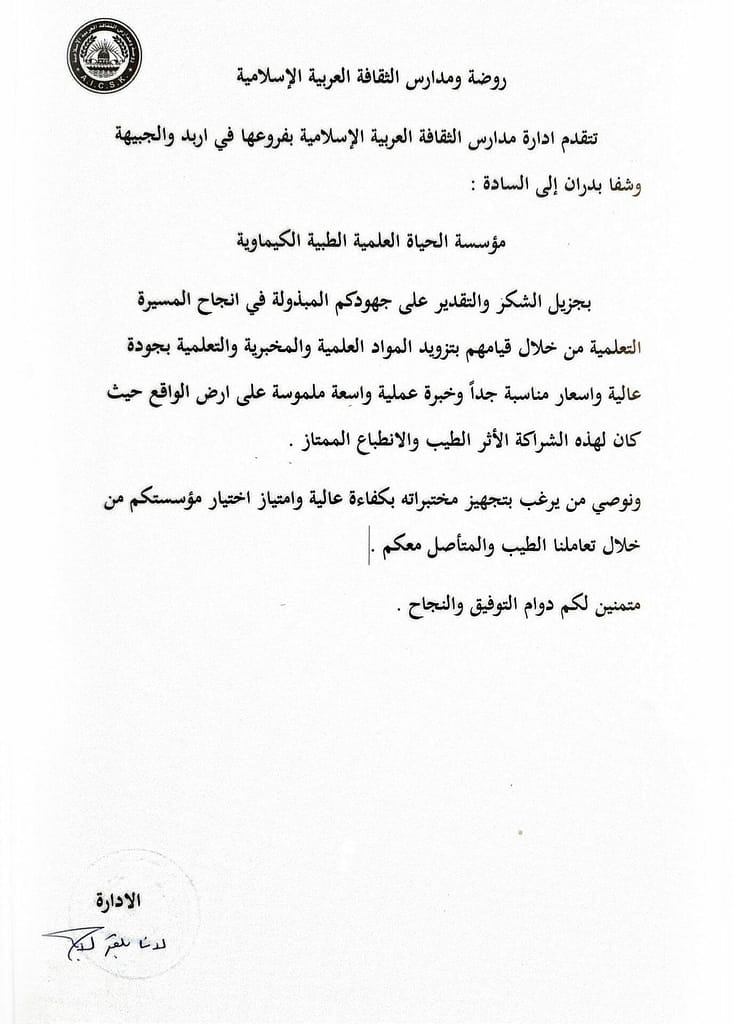 روضة ومدارس الثقافة العربية الإسلامية
A.I.C.S.K.
روضة ومدارس الثقافة العربية الإسلامية
تتقدم ادارة مدارس الثقافة العربية الإسلامية بفروعها في اربد والجبيهة
وشفا بدران إلى السادة :
مؤسسة الحياة العلمية الطبية الكيماوية
بجزيل الشكر والتقدير على جهودكم المبذولة في انجاح المسيرة
التعلمية من خلال قيامهم بتزويد المواد العلمية والمخبرية والتعلمية بجودة
عالية واسعار مناسبة جداً وخبرة عملية واسعة ملموسة على ارض الواقع حيث
كان لهذه الشراكة الأثر الطيب والانطباع الممتاز .
ونوصي من يرغب بتجهيز مختبراته بكفاءة عالية وامتياز اختيار مؤسستكم من
خلال تعاملنا الطيب والمتأصل معكم .
متمنين لكم دوام التوفيق والنجاح .
الادارة